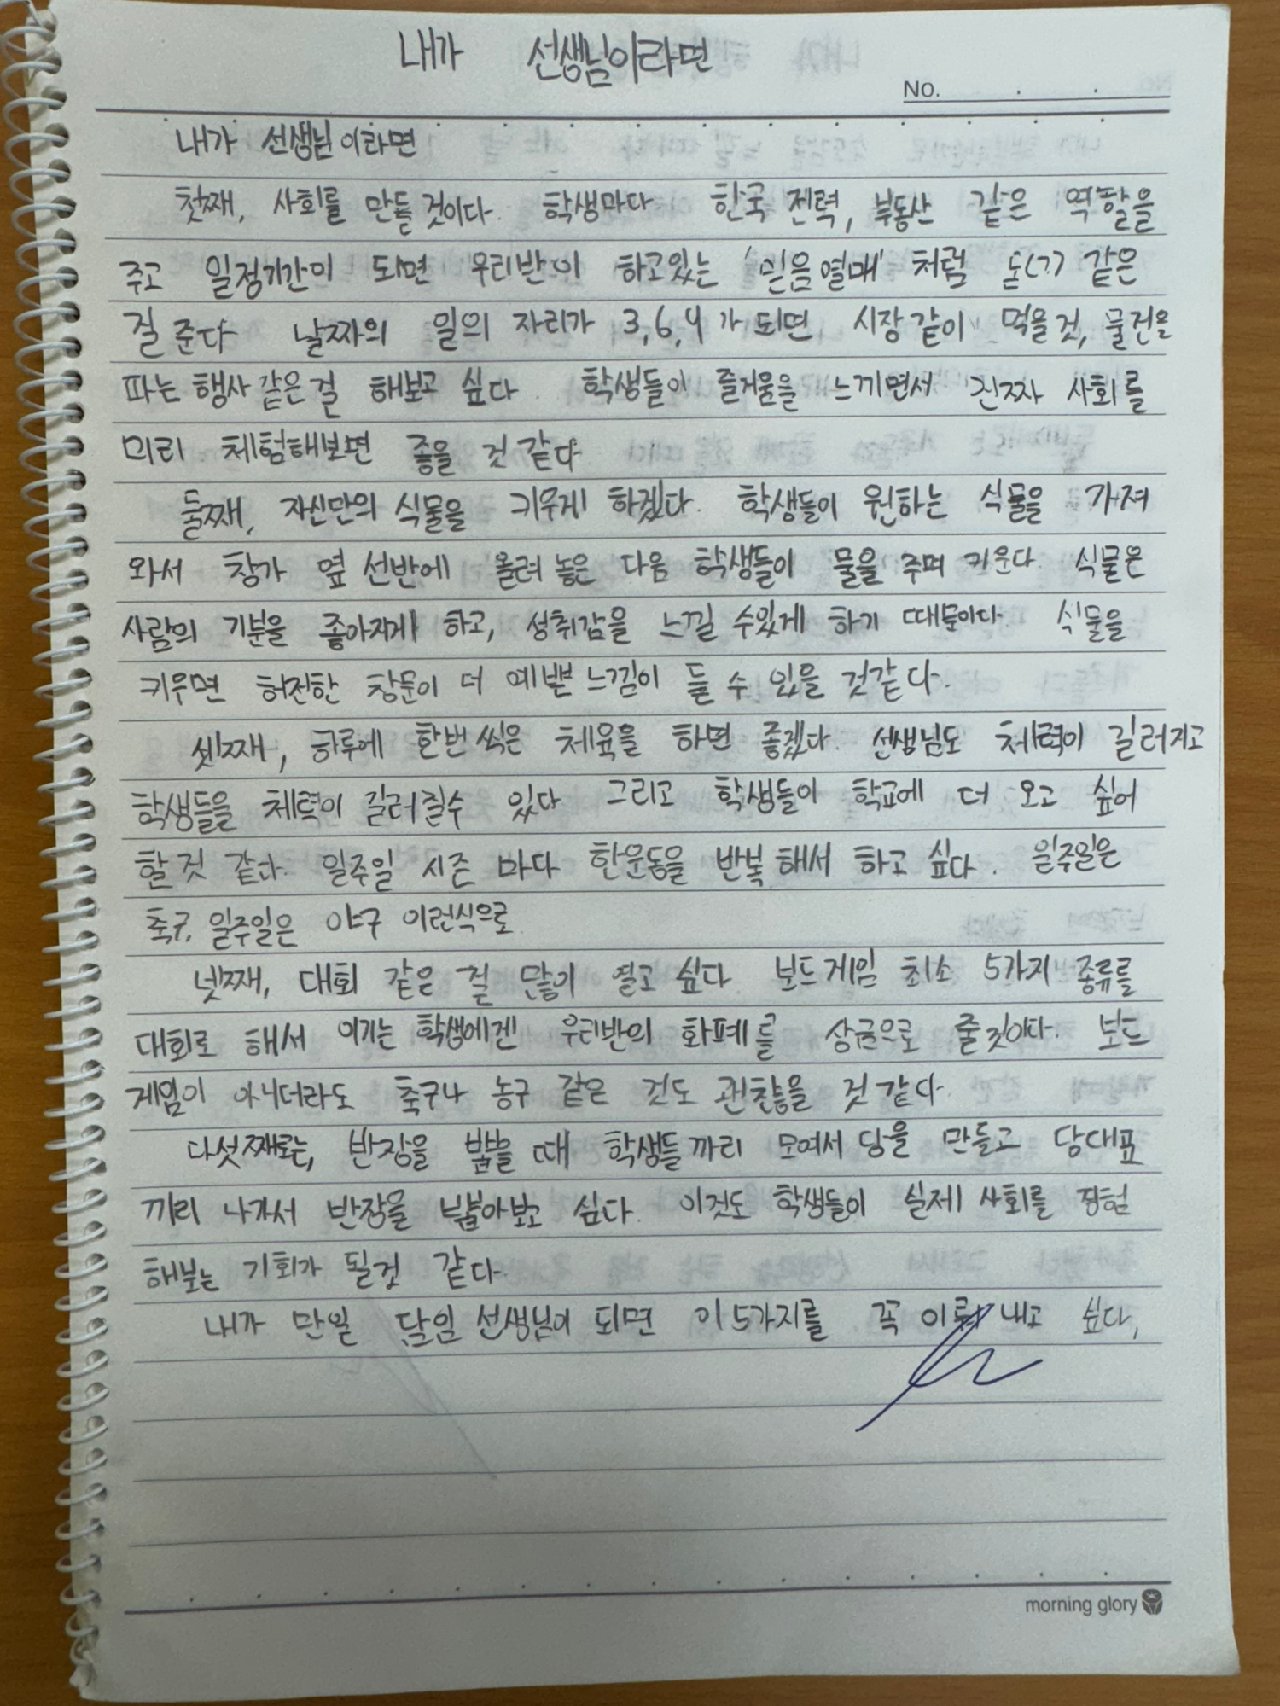 내가 선생님이라면
No.
내가 선생님이라면
첫째, 사회를 만들 것이다. 학생마다 한국 전력, 부동산 같은 역할을
주고 일정기간이 되면 우리반이 하고있는 '믿음열매' 처럼 돈(?) 같은
걸 준다 날짜의 일의 자리가 3,6,9가 되면 시장같이 먹을것, 물건을
파는 행사 같은 걸 해보고 싶다. 학생들이 즐거움을 느끼면서 진짜 사회를
미리 체험해보면 좋을 것 같다
둘째, 자신만의 식물을 키우게 하겠다. 학생들이 원하는 식물을 가져
와서 창가 옆 선반에 올려 놓은 다음 학생들이 물을 주며 키운다. 식물은
사람의 기분을 좋아지게 하고, 성취감을 느낄 수있게 하기 때문이다. 식물을
키우면 허전한 창문이 더 예쁜 느낌이 들 수 있을 것같다.
셋째, 하루에 한번 씩은 체육을 하면 좋겠다. 선생님도 체력이 길러지고
학생들을 체력이 길러질수 있다. 그리고 학생들이 학교에 더 오고 싶어
할것 같다. 일주일 시즌 마다 한운동을 반복 해서 하고 싶다. 일주일은
축구, 일주일은 야구 이런식으로
넷째, 대회 같은 걸 많이 열고 싶다. 보드게임 최소 5가지 종류를
대회로 해서 이기는 학생에겐 우리반의 화폐를 상금으로 줄것이다. 보드
게임이 아니더라도 축구나 농구 같은 것도 괜찮을 것 같다.
다섯째로는, 반장을 뽑을 때 학생들 끼리 모여서 당을 만들고 당대표
끼리 나가서 반장을 뽑아보고 싶다. 이것도 학생들이 실제 사회를 경험
해보는 기회가 될것 같다.
내가 만일 담임 선생님이 되면 이 5가지를 꼭 이뤄 내고 싶다,
morning glory